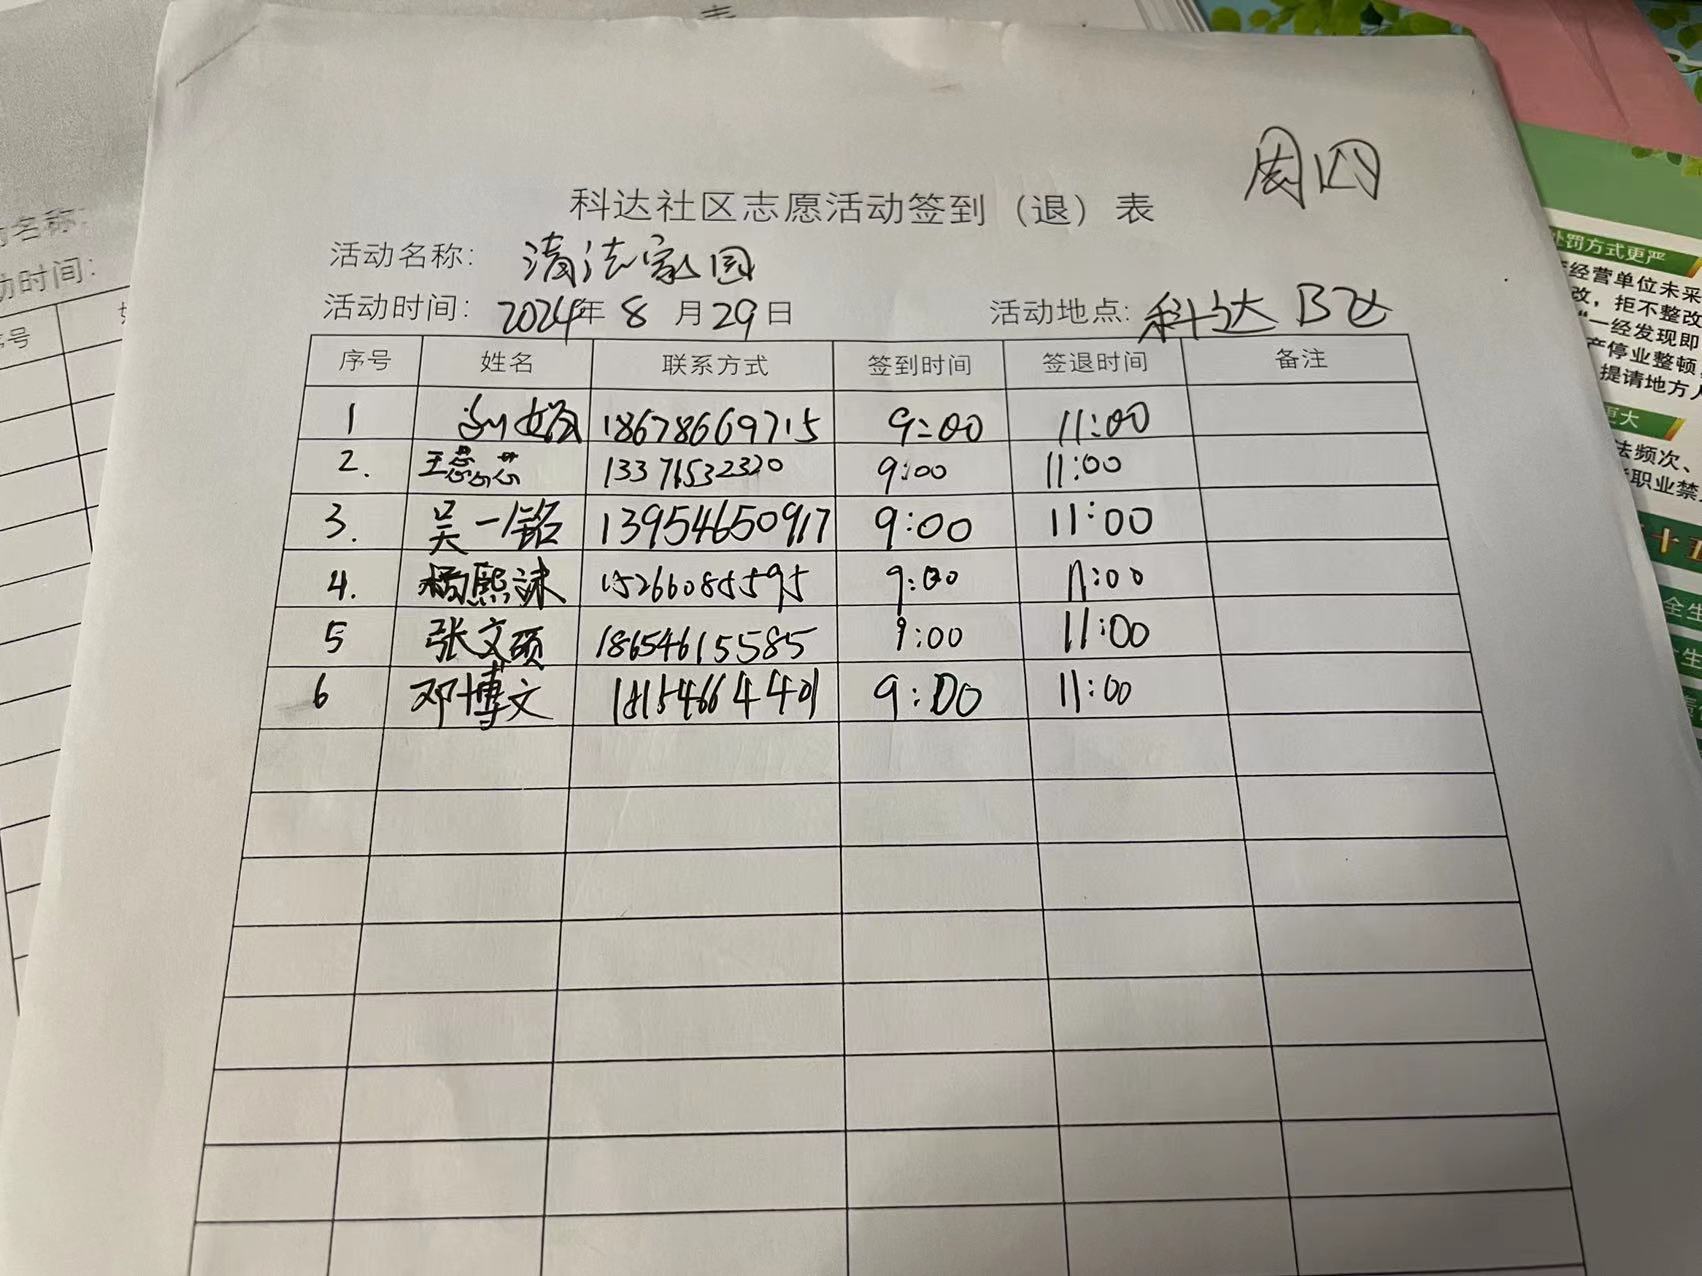 表
周四
科达社区志愿活动签到（退）表
活动名称： 清洁家园
活动时间： 2024年 8 月 29 日 活动地点: 科达 B区
序号 姓名 联系方式 签到时间 签退时间 备注
1 18678669715 9:00 11:00
2. 王蕊芯 13371532320 9:00 11:00
3. 吴一铭 13954650917 9:00 11:00
4. 杨熙沫 15266085595 9:00 11:00
5 张文硕 18654615585 9:00 11:00
6 邓博文 9:00 11:00
名称：
动时间：
序号
处罚方式更严
经营单位未采
改，拒不整改
“一经发现即
产停业整顿
提请地方人
更大
法频次、
职业禁
十五
全生